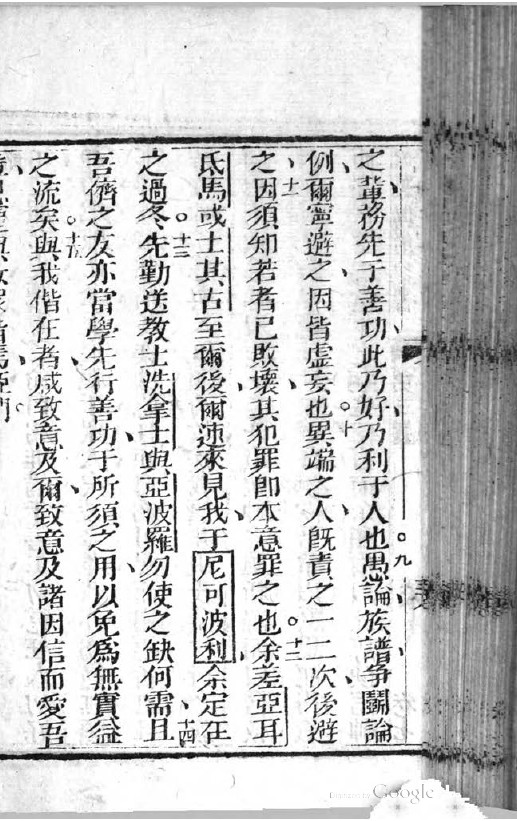 之輩務先于善功此乃好乃利于人也。九愚論族譜爭鬬論
例爾寧避之因皆虛妄也。十異端之人既責之一二次後避
之十一因須知若者已敗壞其犯罪即本意罪之也。十二余差亞耳
氐馬或土其古至爾後爾速來見我于尼可波利余定在
之過冬。十三先勤送教士洗拿士與亞波羅勿使之缺何需十四且
吾儕之友亦當學先行善功于所須之用以免為無實益
之流矣。十五與我偕在者咸致意及爾致意及諸因信而愛吾
Google